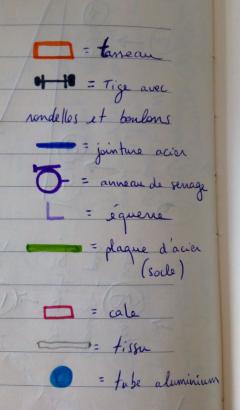 = tasseau
= Tige avec
rondelles et boulons
= jointure acier
= anneau de serrage
= équerre
= plaque d'acier
(socle)
= cale
= tissu
= tube aluminium